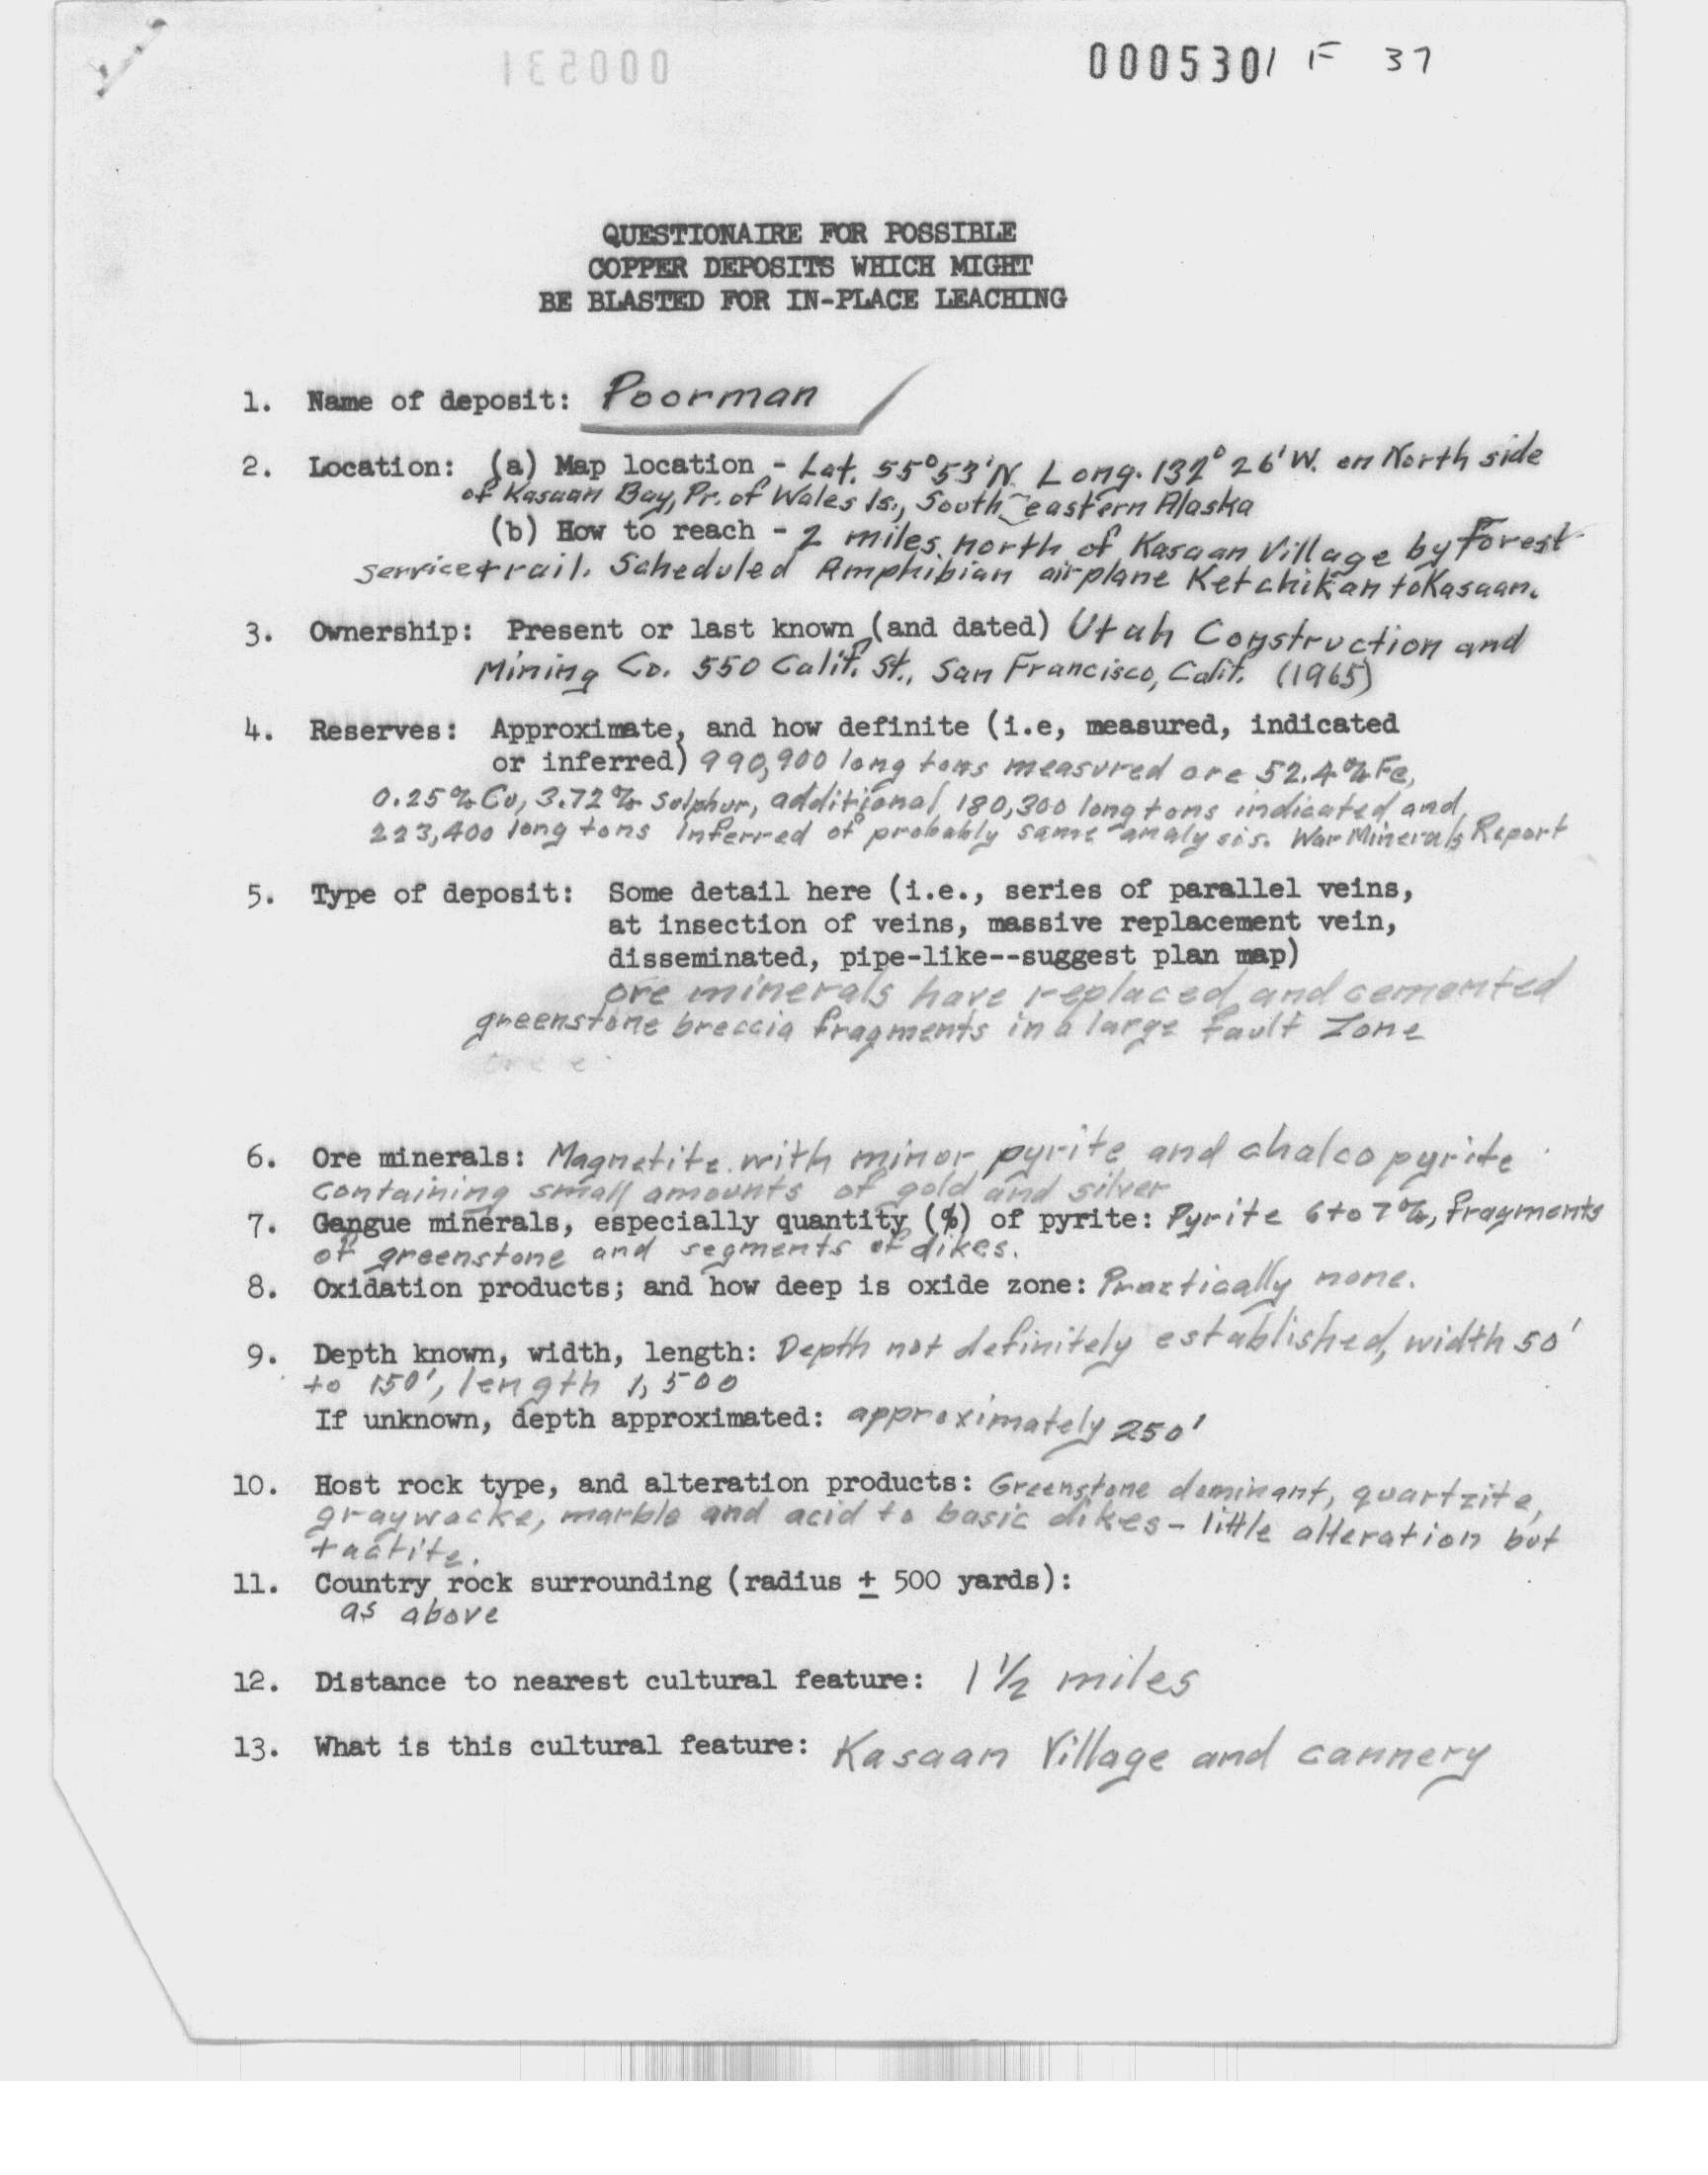 000531
0005301 F 37
QUESTIONAIRE FOR POSSIBLE
COPPER DEPOSITS WHICH MIGHT
BE BLASTED FOR IN-PLACE LEACHING
1. Name of deposit: Poorman
2. Location: (a) Map location - Lat. 55°53'N Long. 132° 26'W. on North side
of Kasaan Bay, Pr. of Wales Is., South eastern Alaska
(b) How to reach - 2 miles north of Kasaan Village by Forest
service trail. Scheduled Amphibian airplane Ketchikan to Kasaan.
3. Ownership: Present or last known (and dated) Utah Construction and
Mining Co. 550 Calif. St., San Francisco, Calif. (1965)
4. Reserves: Approximate, and how definite (i.e, measured, indicated
or inferred) 990,900 long tons measured ore 52.4% Fe,
0.25% Cu, 3.72% Sulphur, additional 180,300 long tons indicated and
223,400 long tons Inferred of probably same analysis. War Minerals Report
5. Type of deposit: Some detail here (i.e., series of parallel veins,
at insection of veins, massive replacement vein,
disseminated, pipe-like--suggest plan map)
ore minerals have replaced and cemented
greenstone breccia fragments in a large fault zone
6. Ore minerals: Magnetite with minor pyrite and chalcopyrite
containing small amounts of gold and silver
7. Gangue minerals, especially quantity (%) of pyrite: Pyrite 6 to 7%, fragments
of greenstone and segments of dikes.
8. Oxidation products; and how deep is oxide zone: Practically none.
9. Depth known, width, length: Depth not definitely established, width 50'
to 150', length 1,500
If unknown, depth approximated: approximately 250'
10. Host rock type, and alteration products: Greenstone dominant, quartzite,
graywacke, marble and acid to basic dikes - little alteration but
tactite.
11. Country rock surrounding (radius ± 500 yards):
as above
12. Distance to nearest cultural feature: 1 1/2 miles
13. What is this cultural feature: Kasaan Village and cannery